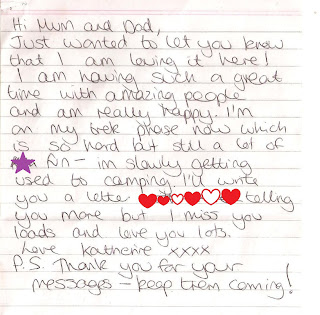 Hi Mum and Dad,
Just wanted to let you know
that I am loving it here!
I am having such a great
time with amazing people
and am really happy. I'm
on my trek phase now which
is so hard but still a lot of
fun - im slowly getting
used to camping. I'll write
you a letter telling
you more but I miss you
loads and love you lots.
Love Katherine xxxx
P.S. Thank you for your
messages - keep them coming!